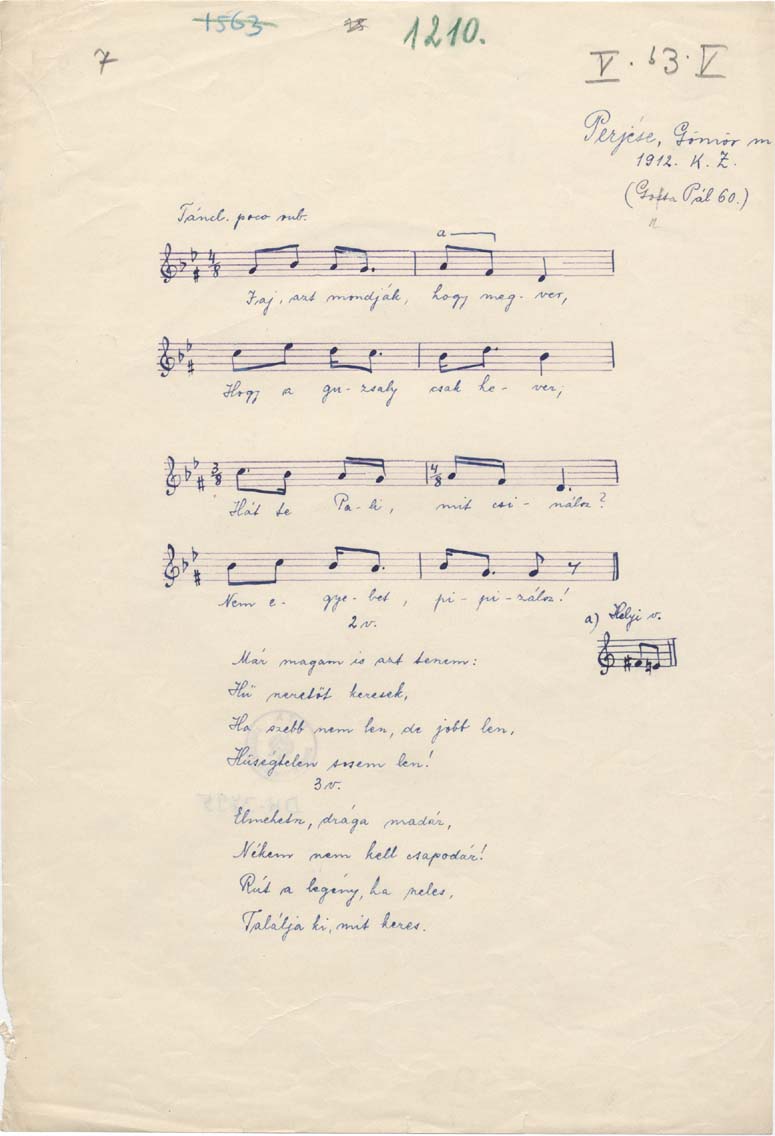 1563
1210.
7
V. b3. V
Perjése, Gömör m
1912. K. Z.
(Gotta Pál 60.)
n
Táncl. poco rub.
a
4/8
Haj, azt mondják, hogy meg-ver,
Hogy a gu-zsaly csak he-ver;
3/8 4/8
Hát te Pa-li, mit csi-nálsz?
Nem e-gye-bet, pi-pi-zálsz!
2 v.
a) Helyi v.
Már magam is azt tenem:
Hű neretőt keresek,
Ha szebb nem len, de jobb len,
Hűségtelen sosem len!
3 v.
Elmehetsz, drága madár,
Nékem nem kell csapodár!
Rút a legény, ha neles,
Találja ki, mit keres.